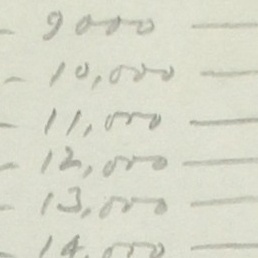 - 9000 —
- 10,000 —
- 11,000 —
- 12,000 —
- 13,000 —
- 14,000 —